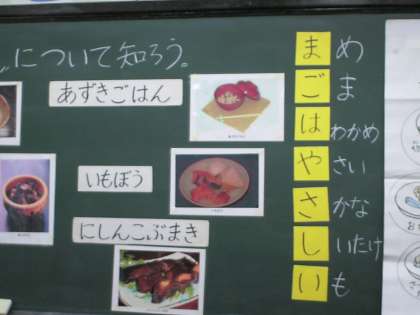 について知ろう。
あずきごはん
いもぼう
にしんこぶまき
まめ
ごま
はわかめ
やさい
さかな
しいたけ
いも